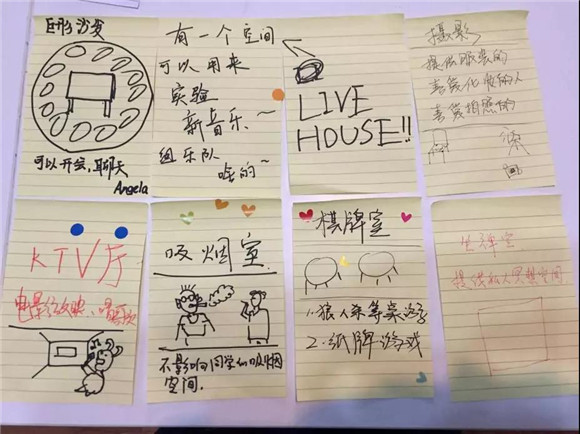 圆形沙发
可以开会,聊天
Angela
有一个空间
可以用来
实验
新音乐~
组乐队
啥的~
LIVE
HOUSE!!
摄影
提供服装的
喜欢化妆的人
喜欢拍照的
KTV厅
电影放映、唱歌
吸烟室
不影响同学们吸烟
空间.
棋牌室
1.狼人杀等桌游
2.纸牌游戏
坐禅室
提供私人冥想空间.